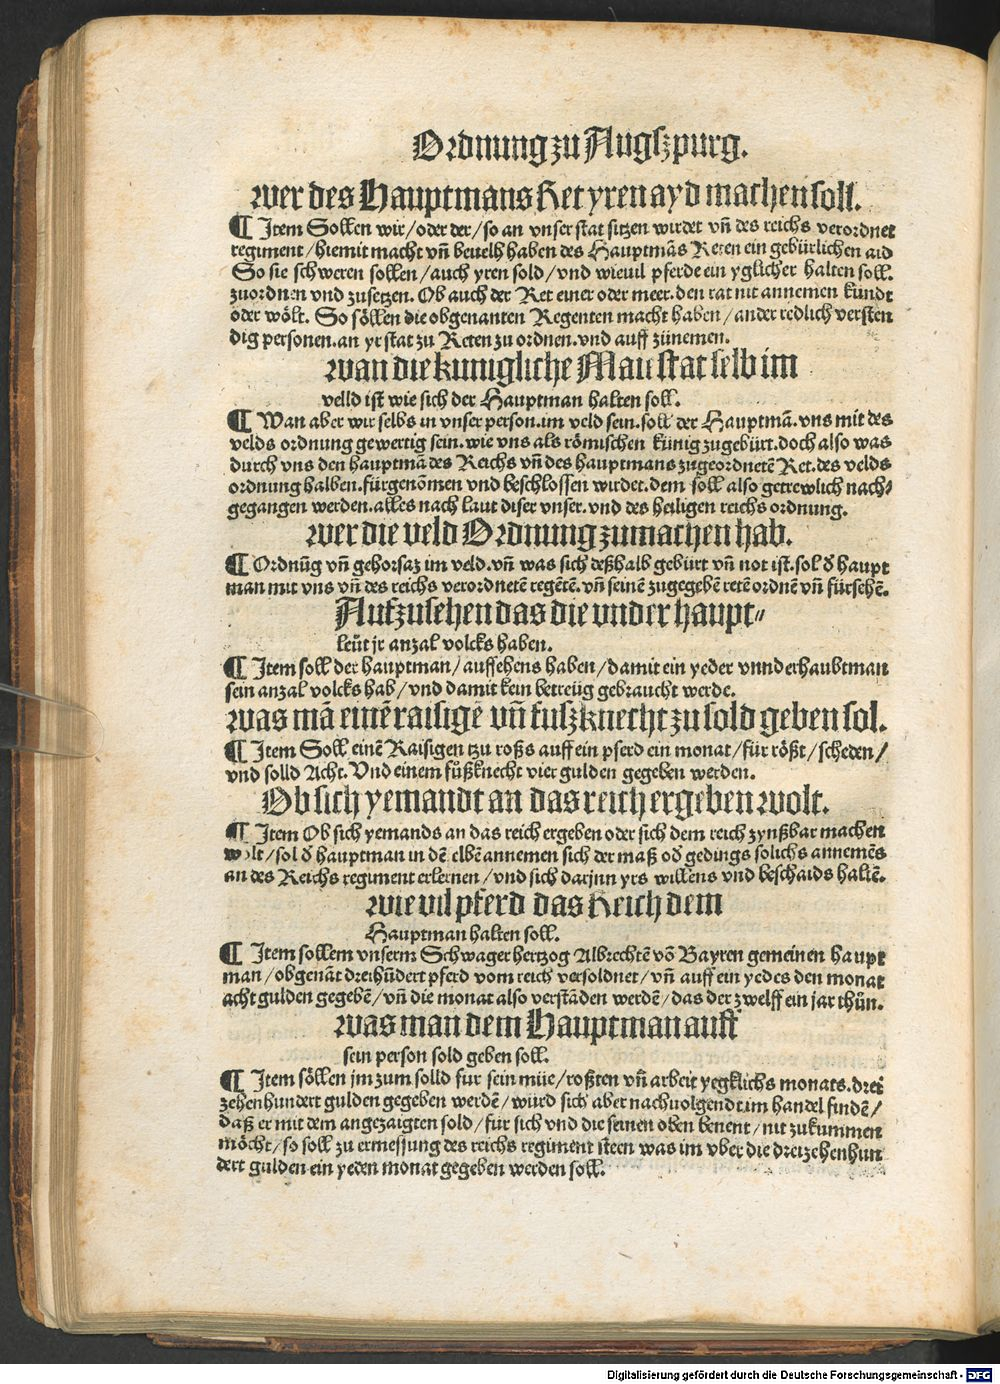 Ordnung zu Augszpurg.
wer des Hauptmans Ret yren ayd machen soll.
¶ Item Sollen wir/ oder der/ so an vnser stat sitzen wirdet vn̄ des reichs verordnet
regiment/ hiemit macht vn̄ beuelh haben des Hauptmās Reten ein gebürlichen aid
So sie schweren sollen/ auch yren sold/ vnd wieuil pferde ein yglicher halten soll.
zuordnen vnd zusetzen. Ob auch der Ret einer oder meer. den rat nit annemen kündt
oder wölt. So söllen die obgenanten Regenten macht haben/ ander redlich versten
dig personen. an yr stat zu Reten zu ordnen. vnd auff zünemen.
wan die kunigliche Maiistat selb im
velld ist wie sich der Hauptman halten soll.
¶ Wan aber wir selbs in vnser person. im veld sein. soll der Hauptmā. vns mit des
velds ordnung gewertig sein. wie vns als römischen künig zugebürt. doch also was
durch vns den hauptmā des Reichs vn̄ des hauptmans zugeordnetē Ret. des velds
ordnung halben. fürgenōmen vnd beschlossen wirdet. dem soll also getrewlich nach⸗
gegangen werden. alles nach laut diser vnser. vnd des heiligen reichs ordnung.
wer die veld Ordnung zumachen hab.
¶ Ordnūg vn̄ gehorsaz im veld. vn̄ was sich deßhalb gebürt vn̄ not ist. sol d̄ haupt
man mit vns vn̄ des reichs verordnetē regētē. vn̄ seinē zugegebē retē ordnē vn̄ fürsehē.
Aufzusehen das die vnder haupt⸗
leüt jr anzal volcks haben.
¶ Item soll der hauptman/ auffsehens haben/ damit ein yeder vnnderhaubtman
sein anzal volcks hab/ vnd damit kein betreüg gebraucht werde.
was mā einē raisigē vn̄ fuszknecht zu sold geben sol.
¶ Item Soll einē Raisigen tzu roßs auff ein pferd ein monat/ für rößt/ scheden/
vnd solld Acht. Vnd einem füßknecht vier gulden gegeben werden.
Ob sich yemandt an das reich ergeben wolt.
¶ Item Ob sich yemands an das reich ergeben oder sich dem reich zynßbar machen
wolt/ sol d̄ hauptman in dē elbē annemen sich der maß od̄ gedings solichs annemēs
an des Reichs regiment erlernen/ vnd sich darjnn yrs willens vnd beschaids haltē.
wie vil pferd das Reich dem
Hauptman halten soll.
¶ Item sollem vnserm Schwager hertzog Albrechtē vō Bayren gemeinen haupt
man/ obgenāt dreihūdert pferd vom reich versoldnet/ vn̄ auff ein yedes den monat
acht gulden gegebē/ vn̄ die monat also verstāden werdē/ das der zwelff ein jar thūn.
was man dem Hauptman auff
sein person sold geben soll.
¶ Item söllen jm zum solld für sein müe/ roßten vn̄ arbeit yegklichs monats. drei
zehenhundert gulden gegeben werdē/ würd sich aber nachuolgendt. im handel findē/
daß er mit dem angezaigten sold/ für sich vnd die seinen oben benent/ nit zukummen
möcht/ so soll zu ermessung des reichs regiment steen was im vber die dreizehenhun
dert gulden ein yeden monat gegeben werden soll.
Digitalisierung gefördert durch die Deutsche Forschungsgemeinschaft - DFG